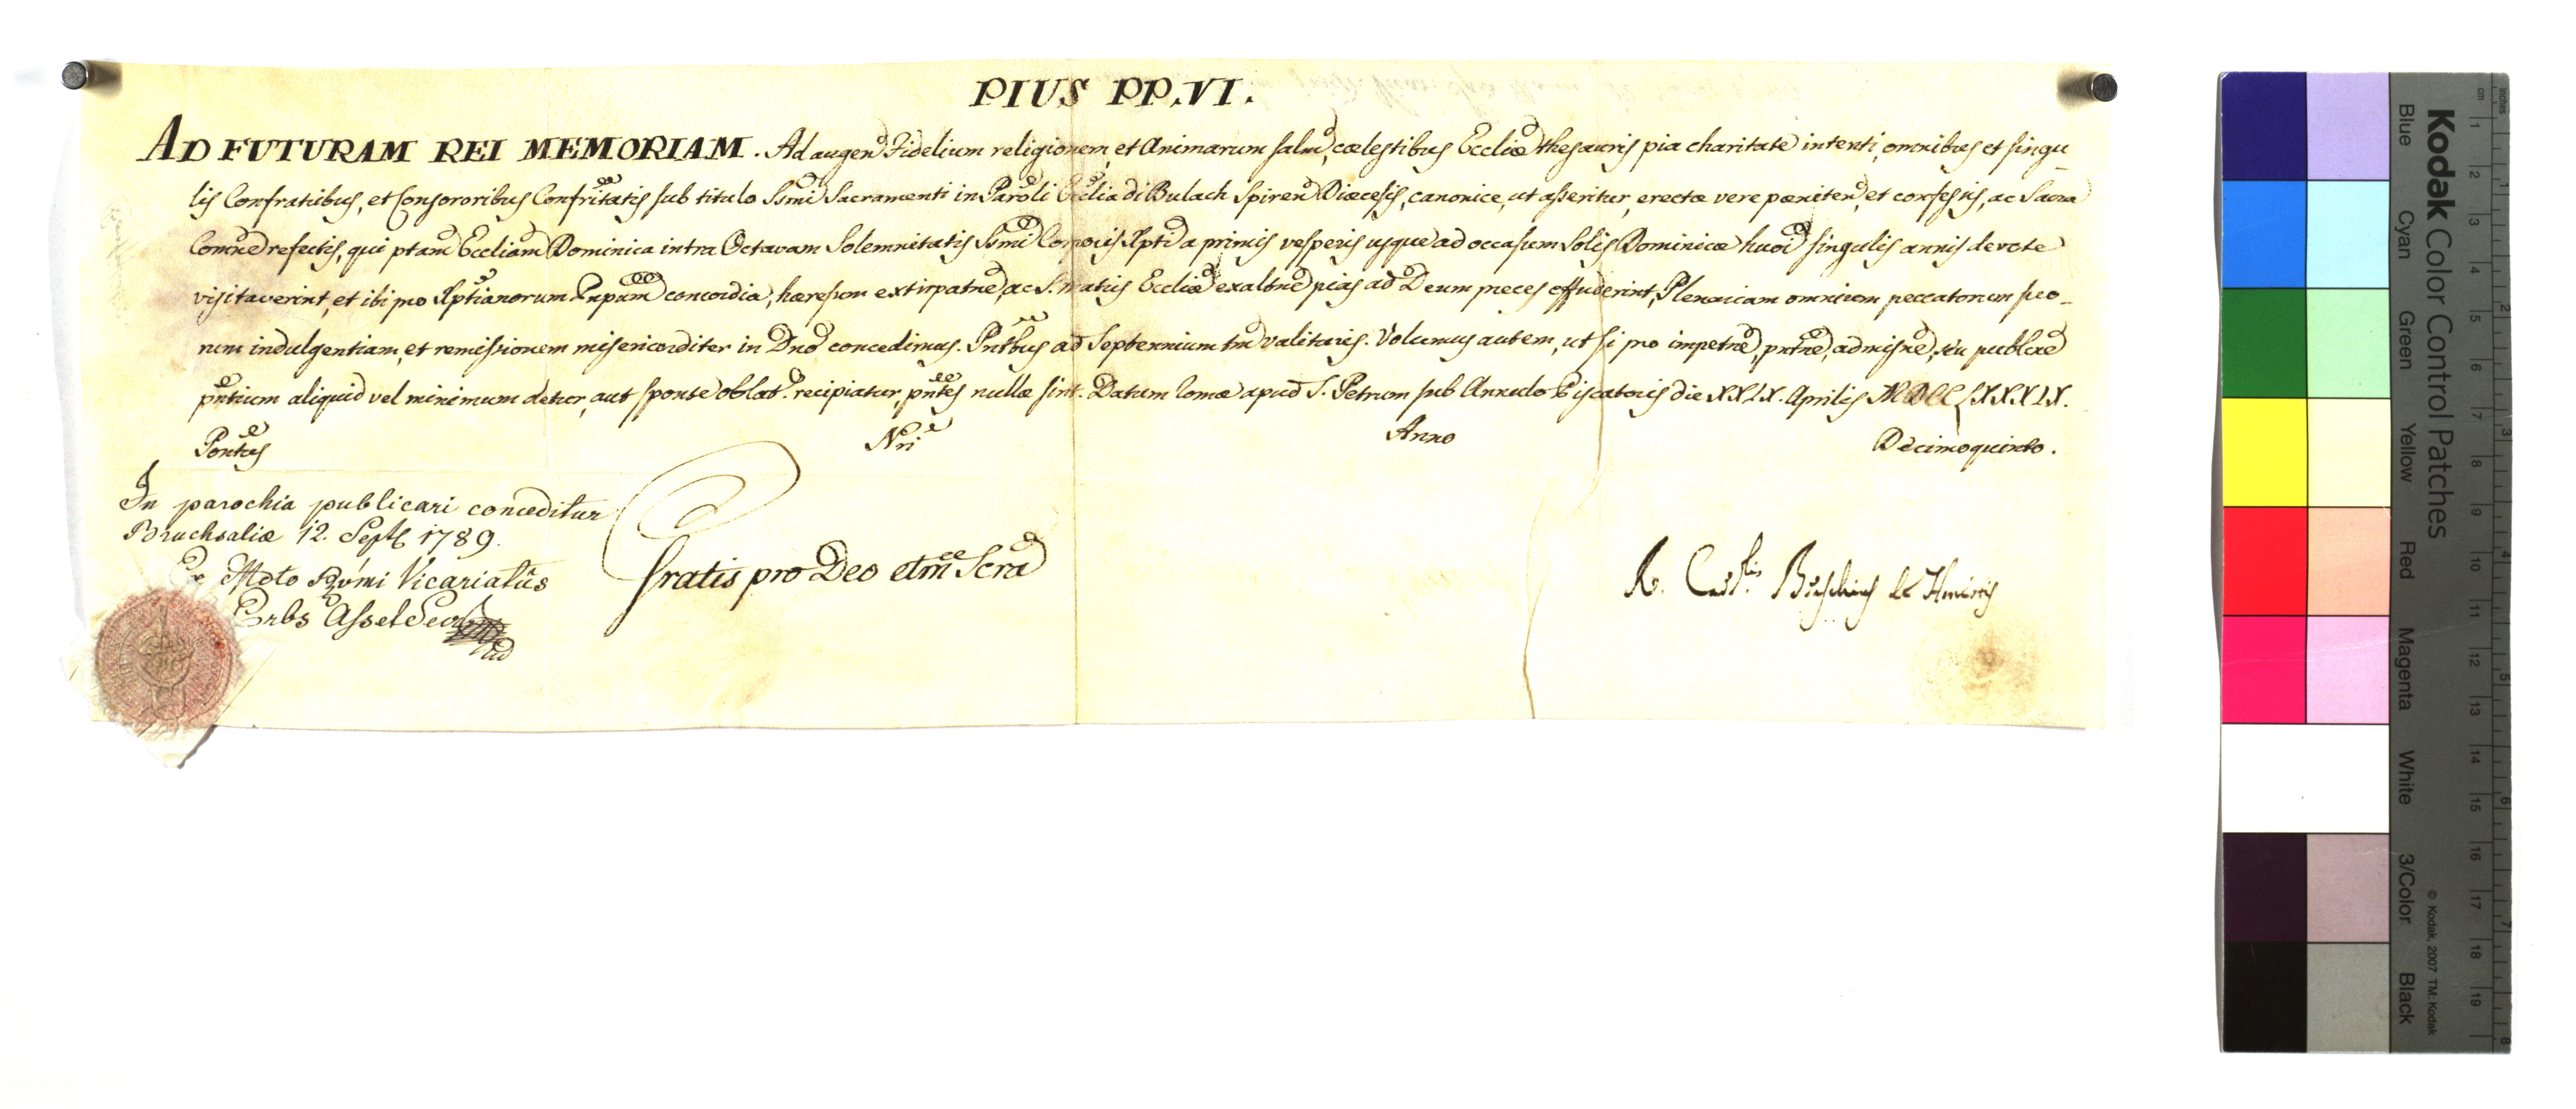 PIUS PP. VI.
AD FUTURAM REI MEMORIAM. Ad augend Fidelium religionem, et Animarum salud, cœlestibus Eccliæ thesauris pia charitate intenti, omnibus et singu
lis Confratribus, et Consororibus Confritatis sub titulo Ssmi Sacramenti in Paroli Ecclia di Bulach Spiren Diœcesis, canonice, ut asseritur, erectæ vere pœniten, et confessis, ac Sacra
Comne refectis, qui ptam Eccliam Dominica intra Octavam Solemnitatis Ssmi Corporis Xpti a primis vesperis usque ad occasum Solis Dominicæ huoi singulis annis devote
visitaverint, et ibi pro Xptianorum Pnpum concordia, hæresum extirpatne, ac S. matris Eccliæ exaltne pias ad Deum preces effuderint, Plenariam omnium peccatorum suo-
rum indulgentiam, et remissionem misericorditer in Dno concedimus. Pntbus ad Septennium tm valituris. Volumus autem, ut si pro impetne, pntne, admisne, seu publicne
pntium aliquid vel minimum detur, aut sponte oblat. recipiatur, pntes nullæ sint. Datum Romæ apud S. Petrum sub Annulo Piscatoris die XXIX. Aprilis MDCCLXXXIX.
Pontus Nri Anno Decimoquinto.
In parochia publicari conceditur
Bruchsaliæ 12. Septb 1789.
De Mdto Rvmi Vicariatûs
Gratis pro Deo etm Scra
R. Cardlis Braschius de Honestis